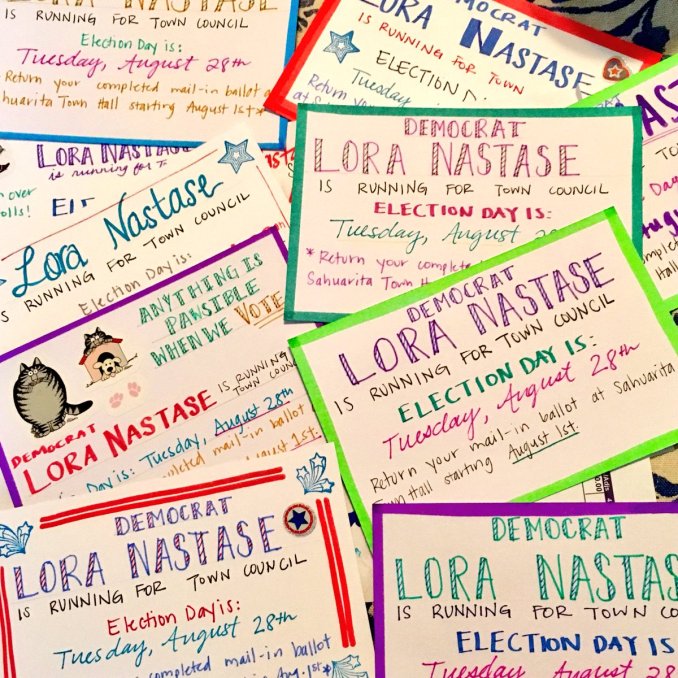 LORA NASTASE
IS RUNNING FOR TOWN COUNCIL
Election Day is:
Tuesday, August 28th
Return your completed mail-in ballot
Sahuarita Town Hall starting August 1st*
DEMOCRAT
LORA NASTASE
IS RUNNING FOR TOWN
ELECTION
Tuesday,
Return you
LORA NASTASE
is running for
over
olls!
Lora Nastase
IS RUNNING FOR TOWN COUNCIL
Election Day is:
DEMOCRAT
LORA NASTASE
IS RUNNING FOR TOWN COUNCIL
ELECTION DAY IS:
Tuesday, August 28
*Return your complete
Sahuarita Town H
ANYTHING IS
PAWSIBLE
WHEN WE VOTE
DEMOCRAT
LORA NASTASE
IS RUNNING
TOWN COUNC
Day is: Tuesday, August 28th
pleted mail-in ballot
August 1st.
DEMOCRAT
LORA NASTASE
IS RUNNING FOR TOWN COUNCIL
ELECTION DAY IS:
Tuesday, August 28th
Return your mail-in ballot at Sahuarita
Town Hall starting August 1st.
DEMOCRAT
LORA NASTASE
IS RUNNING FOR TOWN COUNCIL
Election Day is:
Tuesday, August 28th
completed mail-in ballot
Aug. 1st*
DEMOCRAT
LORA NASTAS
IS RUNNING FOR TOWN CO
ELECTION DAY IS
Tuesday August 28th